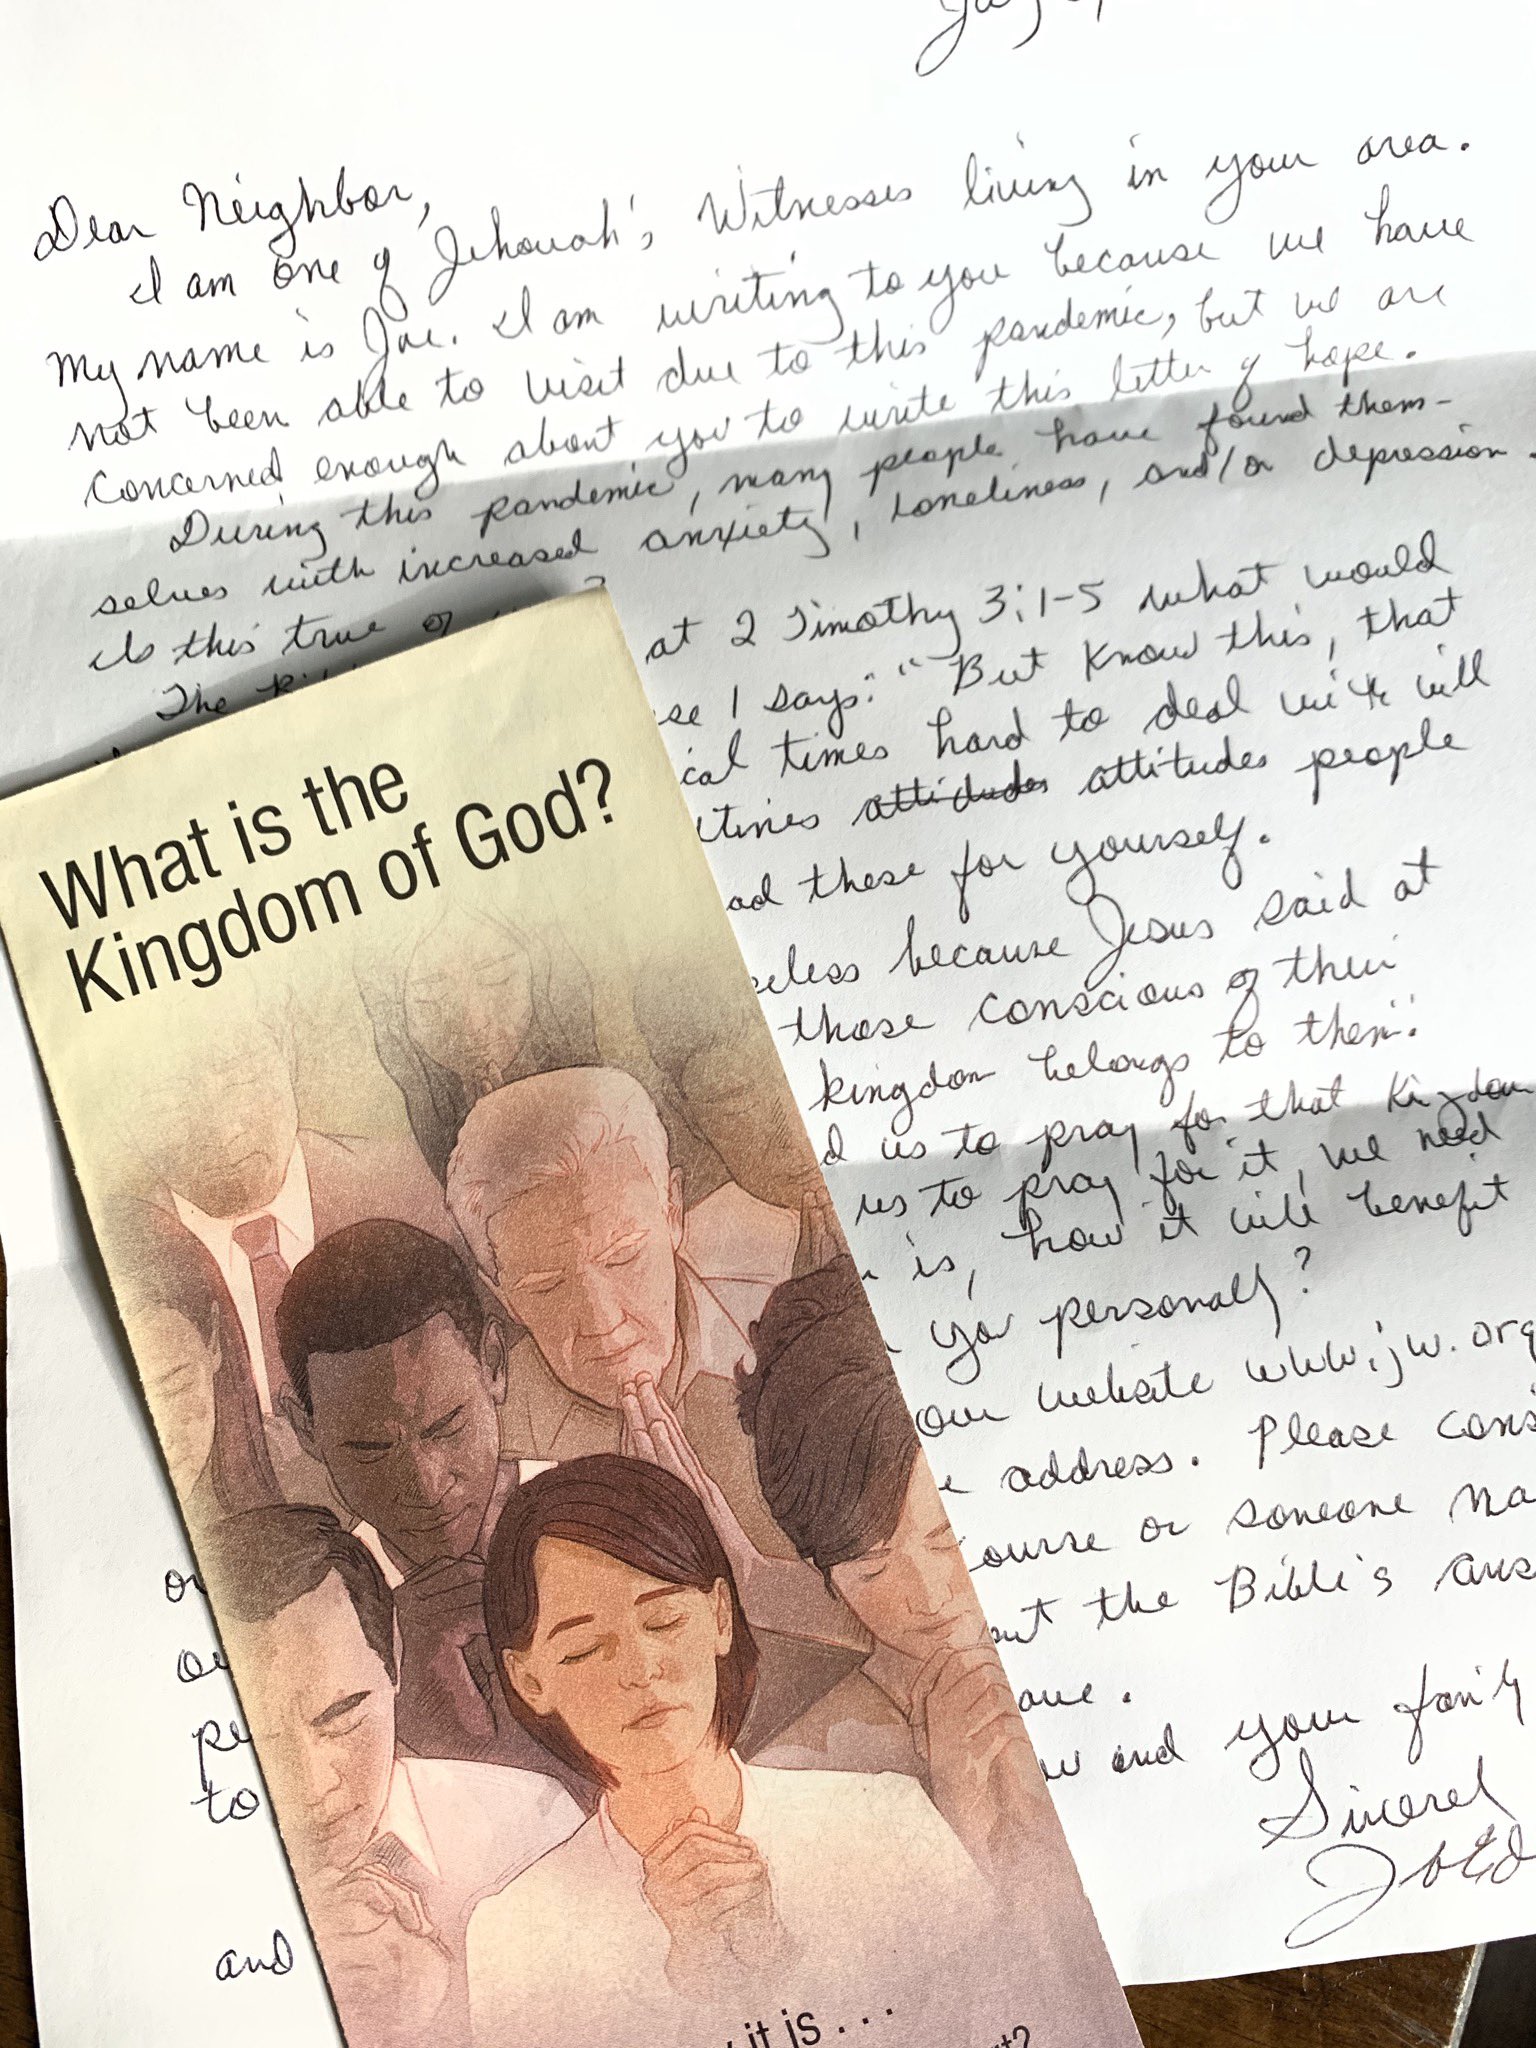 Dear Neighbor,
I am one of Jehovah's Witnesses living in your area.
My name is Joe. I am writing to you because we have
not been able to visit due to this pandemic, but we are
concerned enough about you to write this letter of hope.
During this pandemic, many people have found them-
selves with increased anxiety, loneliness, and/or depression.
Is this true of
The at 2 Timothy 3:1-5 what would
1 says: "But know this, that
times hard to deal with will
attidudes attitudes people
these for yourself.
because Jesus said at
those conscious of their
kingdom belongs to them".
us to pray for that Kingdom
us to pray for it, we need
is, how it will benefit
you personally?
our website www.jw.org
address. Please
or someone
the Bible's
and your family
to
Sincerel
and
What is the
Kingdom of God?
it is . . .